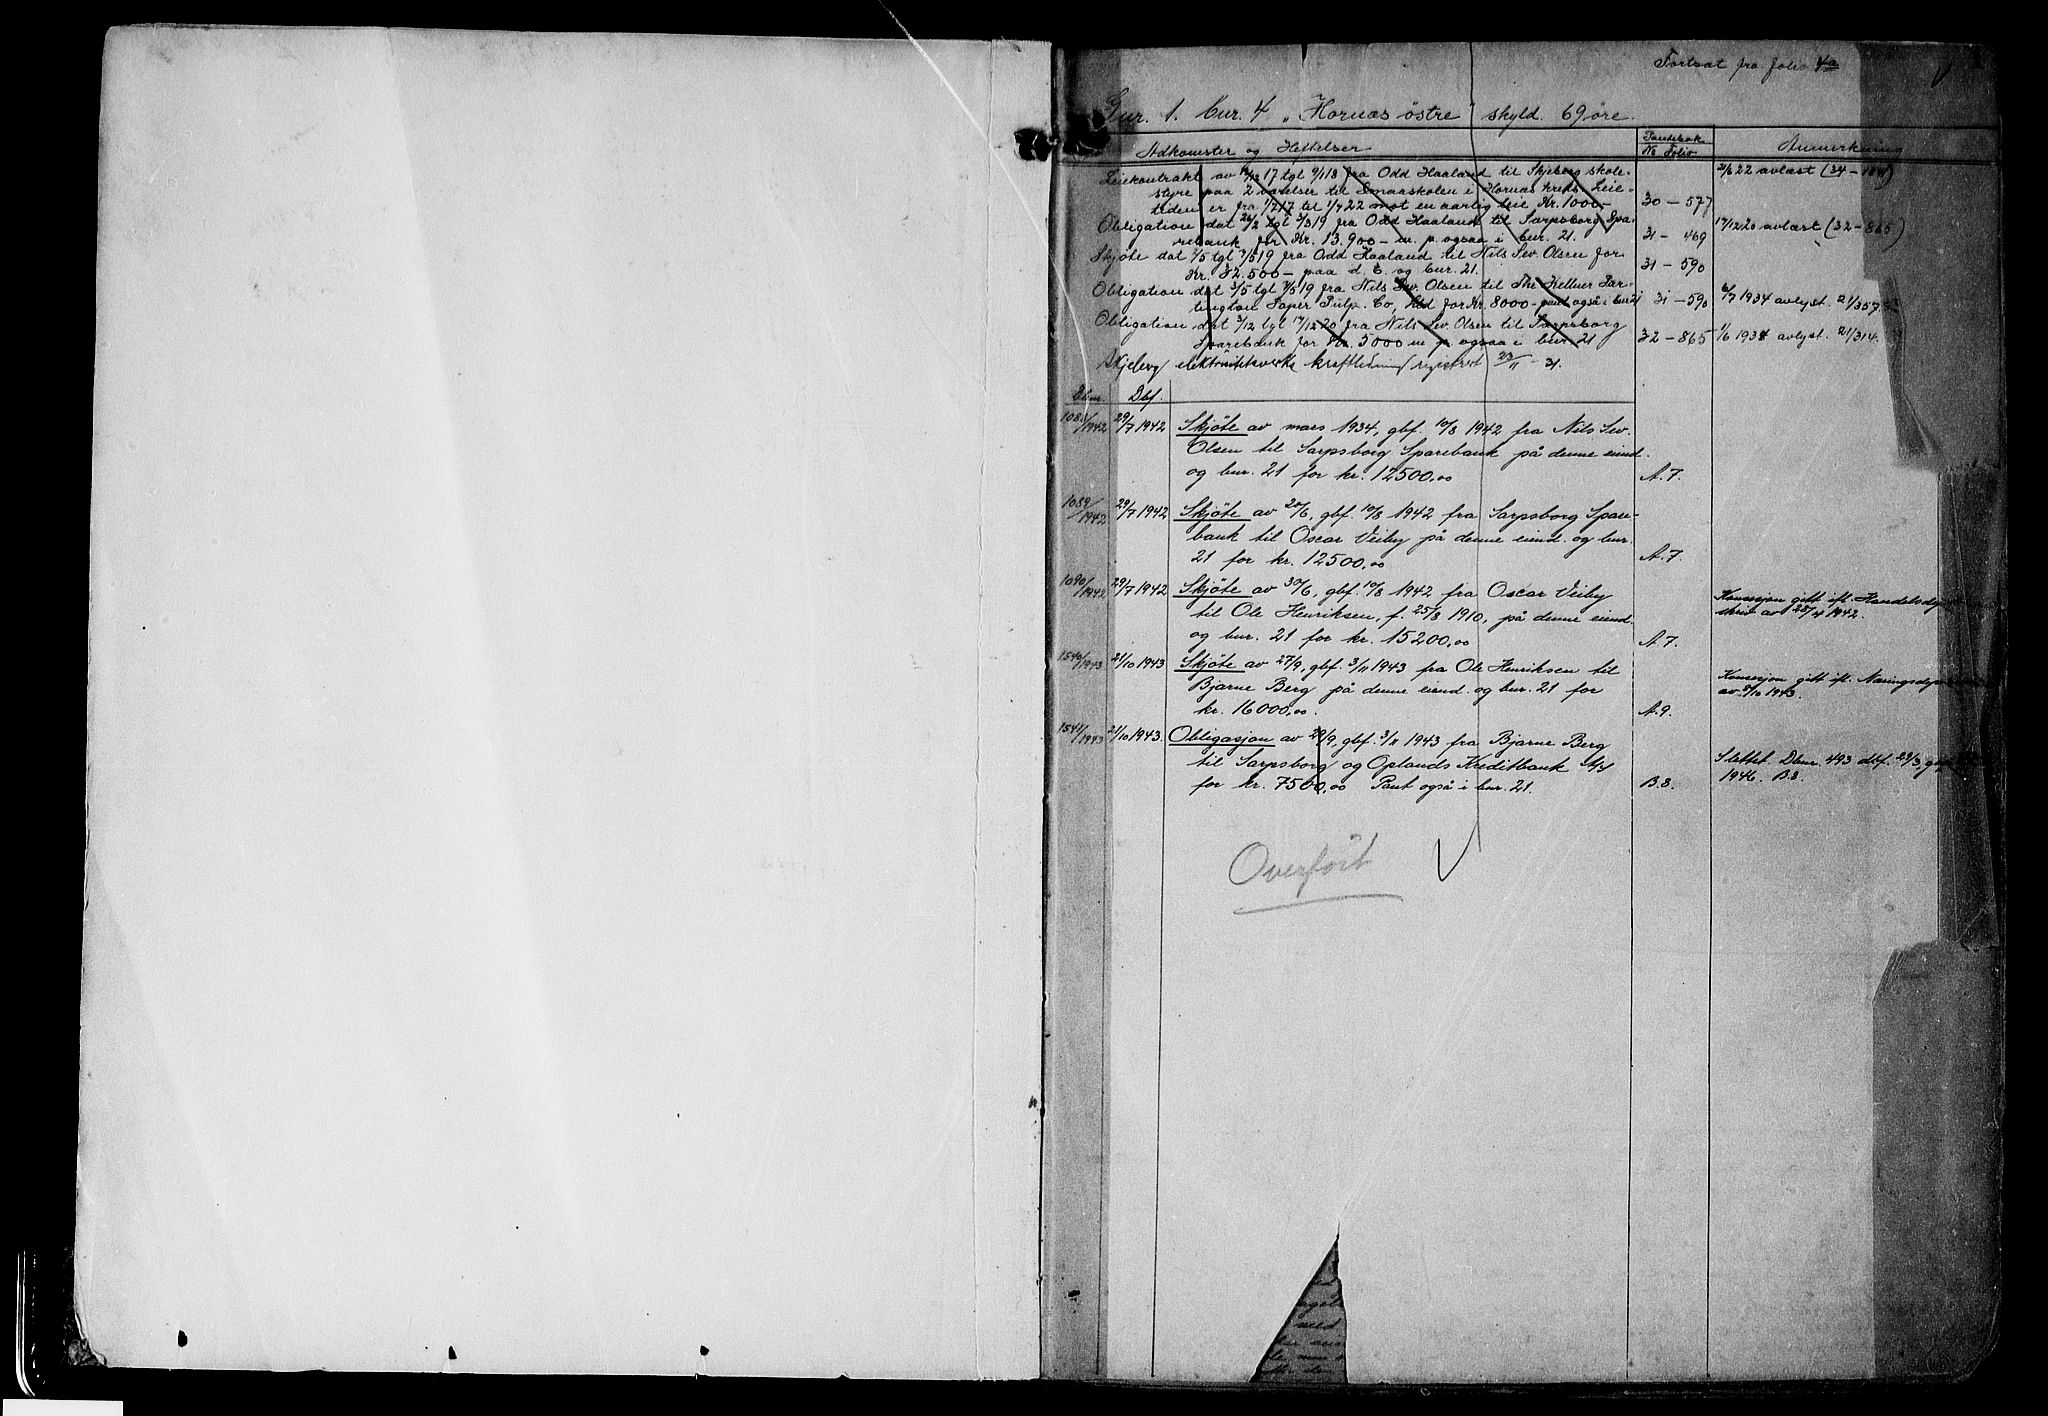 Fortsat fra folio 4a
Gnr. 1. bnr. 4 „Hornæs östre" skyld. 69 öre.
Adkomster og Heftelser
Pantebok
No Folio
Anmerkning
Leiekontrakt av 17 tgl 9/1 18 fra Odd Haaland til Skjeberg skole- 2/6 22 avlæst (34-
styre paa 2 værelser til Smaaskolen i Hornæs kreds. Leie-
tiden er fra 1/7 17 til 1/7 22 mot en aarlig leie Kr. 1000- 30 - 577
Obligation dat 26/2 tgl 3/3 19 fra Odd Haaland til Sarpsborg Spa- 17/12 20 avlæst (32-865)
rebank for Kr. 13.900 - m. p. ogsaa i bnr. 21. 31 - 469
Skjöte dat 1/5 tgl 3/5 19 fra Odd Haaland til Nils Sev. Olsen for
Kr. 32.500 - paa d. E. og bnr. 21. 31 - 590
Obligation dat 3/5 tgl 3/5 19 fra Nils Sev. Olsen til The Kellner Par- 6/7 1934 avlyst. 21/357.
tington Paper Pulp. Co, Ltd for Kr. 8000 - pant også i bnr 21 31 - 590
Obligation dat 3/12 tgl 17/12 20 fra Nils Sev. Olsen til Sarpsborg
Sparebank for Kr. 5000 m p. ogsaa i bnr. 21 32 - 865 1/6 1934 avlyst. 21/314.
Skjeberg elektricitetsverks kraftledning registrert 23/11 - 31.
Dbnr. Dbf.
1088/1942 29/7 1942 Skjöte av mars 1934, gbf. 10/8 1942 fra Nils Sev.
Olsen til Sarpsborg Sparebank på denne eiend.
og bnr. 21 for kr. 12500,00 A.7.
1089/1942 29/7 1942 Skjöte av 20/6, gbf. 10/8 1942 fra Sarpsborg Spare-
bank til Oscar Veiby på denne eiend. og bnr.
21 for kr. 12500,00 A.7.
1090/1942 29/7 1942 Skjöte av 30/6, gbf. 10/8 1942 fra Oscar Veiby Konsesjon gitt ifl. Handelsdep.
til Ole Henriksen, f. 25/8 1910, på denne eiend. skriv av 25/4 1942.
og bnr. 21 for kr. 15200,00 A.7.
1540/1943 21/10 1943 Skjöte av 27/9, gbf. 3/11 1943 fra Ole Henriksen til
Bjarne Berg på denne eiend. og bnr. 21 for Konsesjon gitt ifl. Næringsdep.
kr. 16000,00 A.9. av 8/10 1943.
1541/1943 21/10 1943. Obligasjon av 29/9, gbf. 3/11 1943 fra Bjarne Berg
til Sarpsborg og Oplands Kreditbank A/S Slettet Dbnr. 493 dbf. 23/3, gbf.
for kr. 7500,00 Pant også i bnr. 21. B.8. 1946. B.8.
Overfört